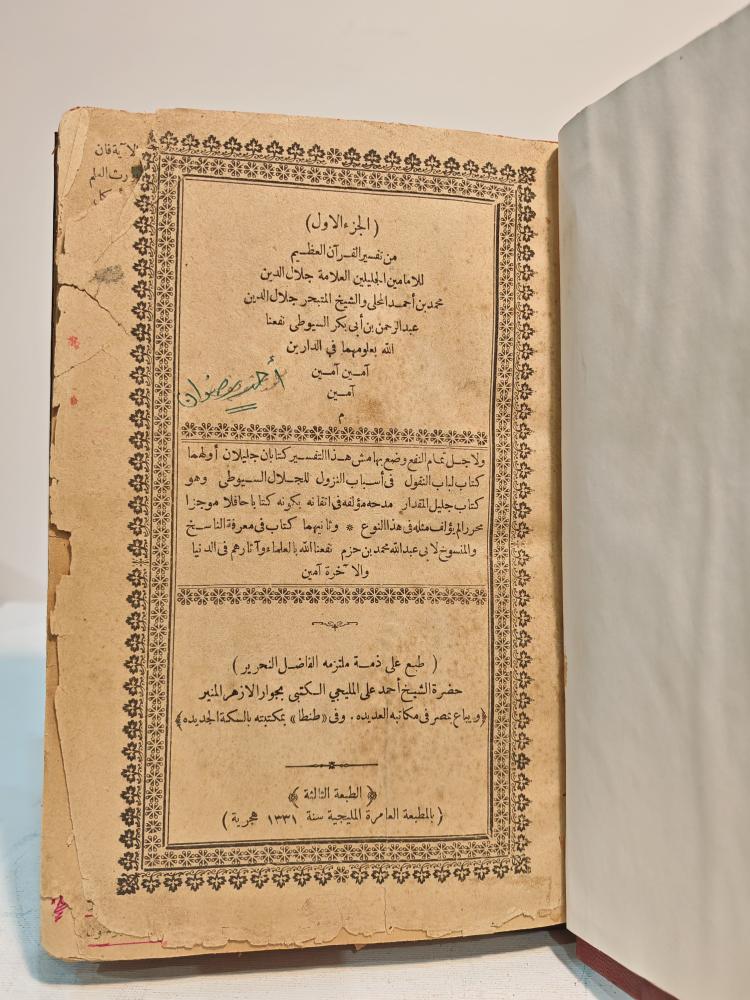 لآية فان
رث الدلم
(الجزء الاول)
من تفسير القرآن العظيم
للامامين الجليلين العلامة جلال الدين
محمد بن أحمد المحلى والشيخ المتبحر جلال الدين
عبد الرحمن بن أبى بكر السيوطى نفعنا
الله بعلومهما فى الدارين
آمين آمين
آمين
م
أحمد رضوان
ولاجل تمام النفع وضع بهامش هذا التفسير كتابان جليلان أولهما
كتاب لباب النقول فى أسباب النزول للجلال السيوطى وهو
كتاب جليل المقدار مدحه مؤلفه فى اتقانه بكونه كتابا حافلا موجزا
محررا لم يؤلف مثله فى هذا النوع * وثانيهما كتاب فى معرفة الناسخ
والمنسوخ لابى عبد الله محمد بن حزم نفعنا الله بالعلماء وآثارهم فى الدنيا
والآخرة آمين
(طبع على ذمة ملتزمه الفاضل النحرير)
حضرة الشيخ أحمد على المليجى الكتبى بجوار الازهر المنير
﴿ويباع بمصر فى مكاتبه العديده. وفى «طنطا» بمكتبته بالسكة الجديده﴾
﴿الطبعة الثالثة﴾
(بالمطبعة العامرة المليجية سنة ١٣٣١ هجرية)